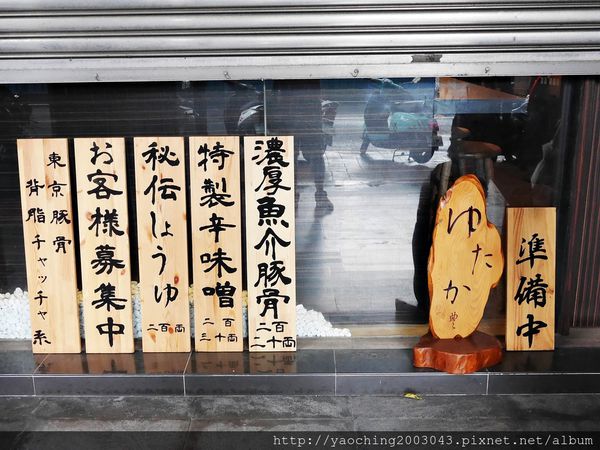 東京豚骨
背脂チャッチャ系
お客様募集中
秘伝しょうゆ
二百両
特製辛味噌
二百
三十両
濃厚魚介豚骨
二百
二十両
ゆたか
準備中
http://yaoching2003043.pixnet.net/album